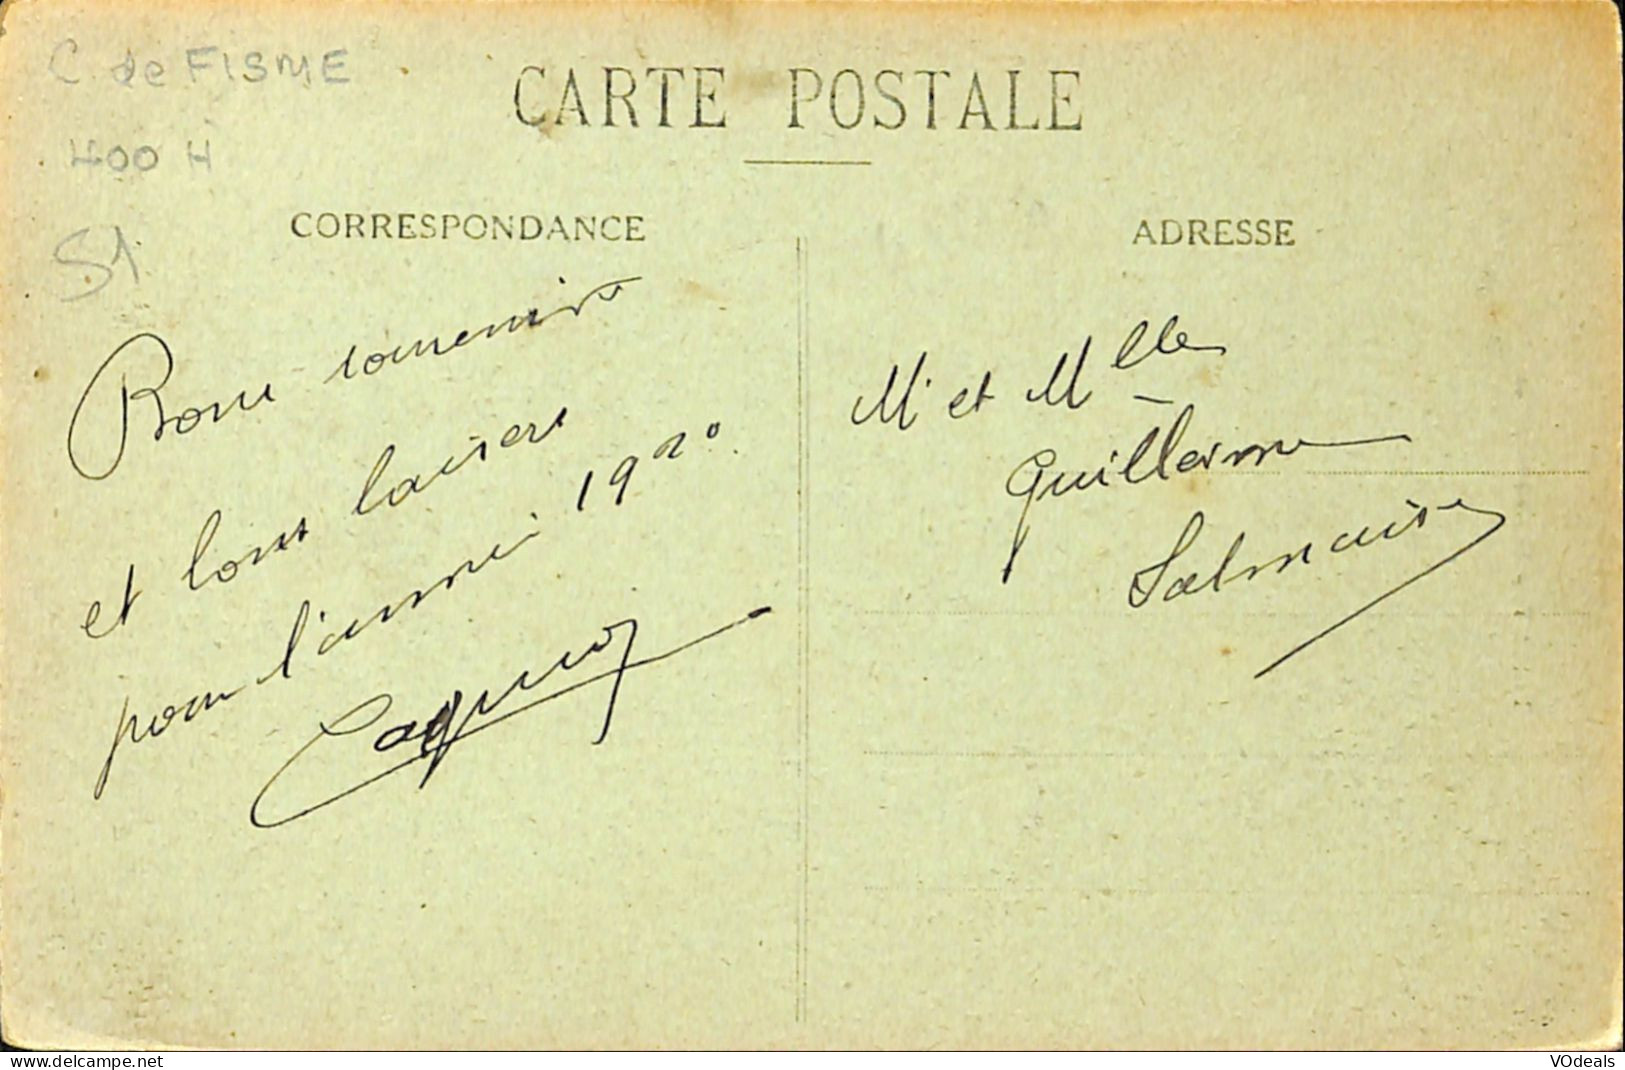 C de FISME
400 H
51
CARTE POSTALE
CORRESPONDANCE
ADRESSE
Bons souvenirs
et bons baisers
pour l'année 1920.
Mr et Mlle
Guillerme
Salmaise
VOdeals